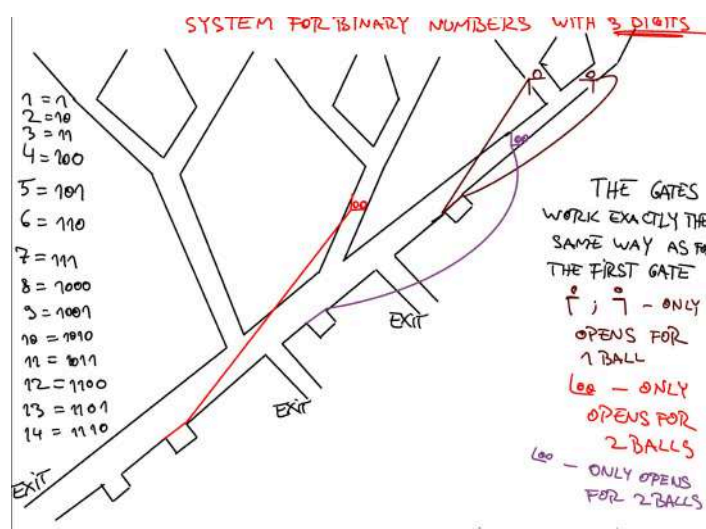 SYSTEM FOR BINARY NUMBERS WITH 3 DIGITS
1 = 1
2 = 10
3 = 11
4 = 100
5 = 101
6 = 110
7 = 111
8 = 1000
9 = 1001
10 = 1010
11 = 1011
12 = 1100
13 = 1101
14 = 1110
EXIT
EXIT
EXIT
THE GATES
WORK EXACTLY THE
SAME WAY AS FO
THE FIRST GATE
; - ONLY
OPENS FOR
1 BALL
- ONLY
OPENS FOR
2 BALLS
- ONLY OPENS
FOR 2 BALLS